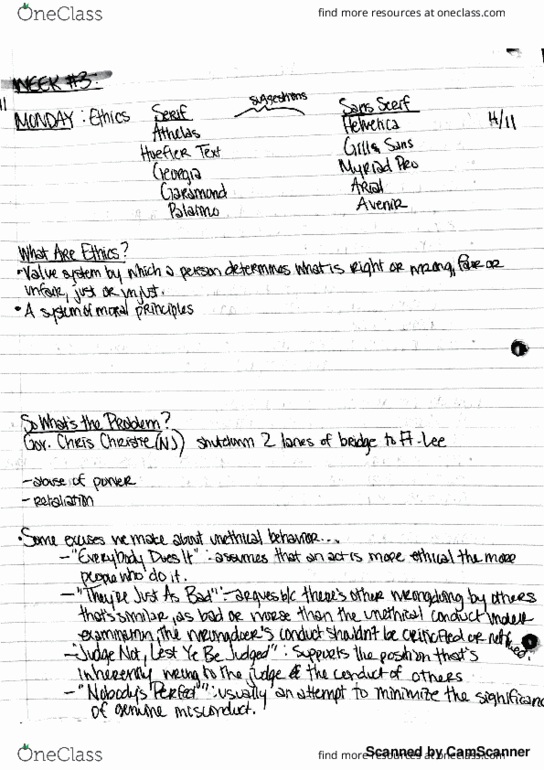 OneClass
find more resources at oneclass.com
WEEK #3:
MONDAY: Ethics
Serif
suggestions
Sans Serif
4/11
Athelas
Helvetica
Hoefler Text
Gill Sans
Georgia
Myriad Pro
Garamond
Arial
Palatino
Avenir
What Are Ethics?
•Value system by which a person determines what is right or wrong, fair or
unfair, just or unjust.
•A system of moral principles
So What's the Problem?
Gov. Chris Christie (NJ) shutdown 2 lanes of bridge to Ft. Lee
-abuse of power
-retaliation
•Some excuses we make about unethical behavior...
-"Everybody Does It": assumes that an act is more ethical the more
people who do it.
-"They're Just As Bad" - argues b/c there's other wrongdoing by others
that's similar, as bad or worse than the unethical conduct under
examination, the wrongdoer's conduct shouldn't be criticized or
-"Judge Not, Lest Ye Be Judged": Supports the position that's
inherently wrong to the judge the conduct of others
-"Nobody's Perfect": usually an attempt to minimize the significance
of genuine misconduct.
OneClass
find more resources at oneclass.com
Scanned by CamScanner